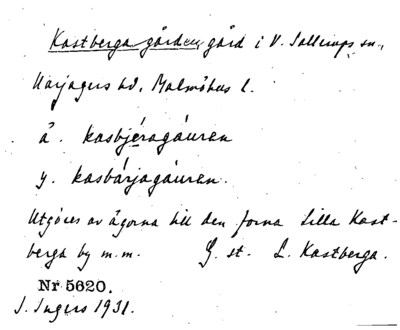 Kastberga gården gård i V. Sallerups sn.,
Harjagers hd, Malmöhus l.
ä. kasbjæ̀ragáuren
y. kasbárjagáuren.
Utgöres av ägorna till den forna Lilla Kast-
berga by m.m. G. st. L. Kastberga.
Nr 5620.
I. Ingers 1931.